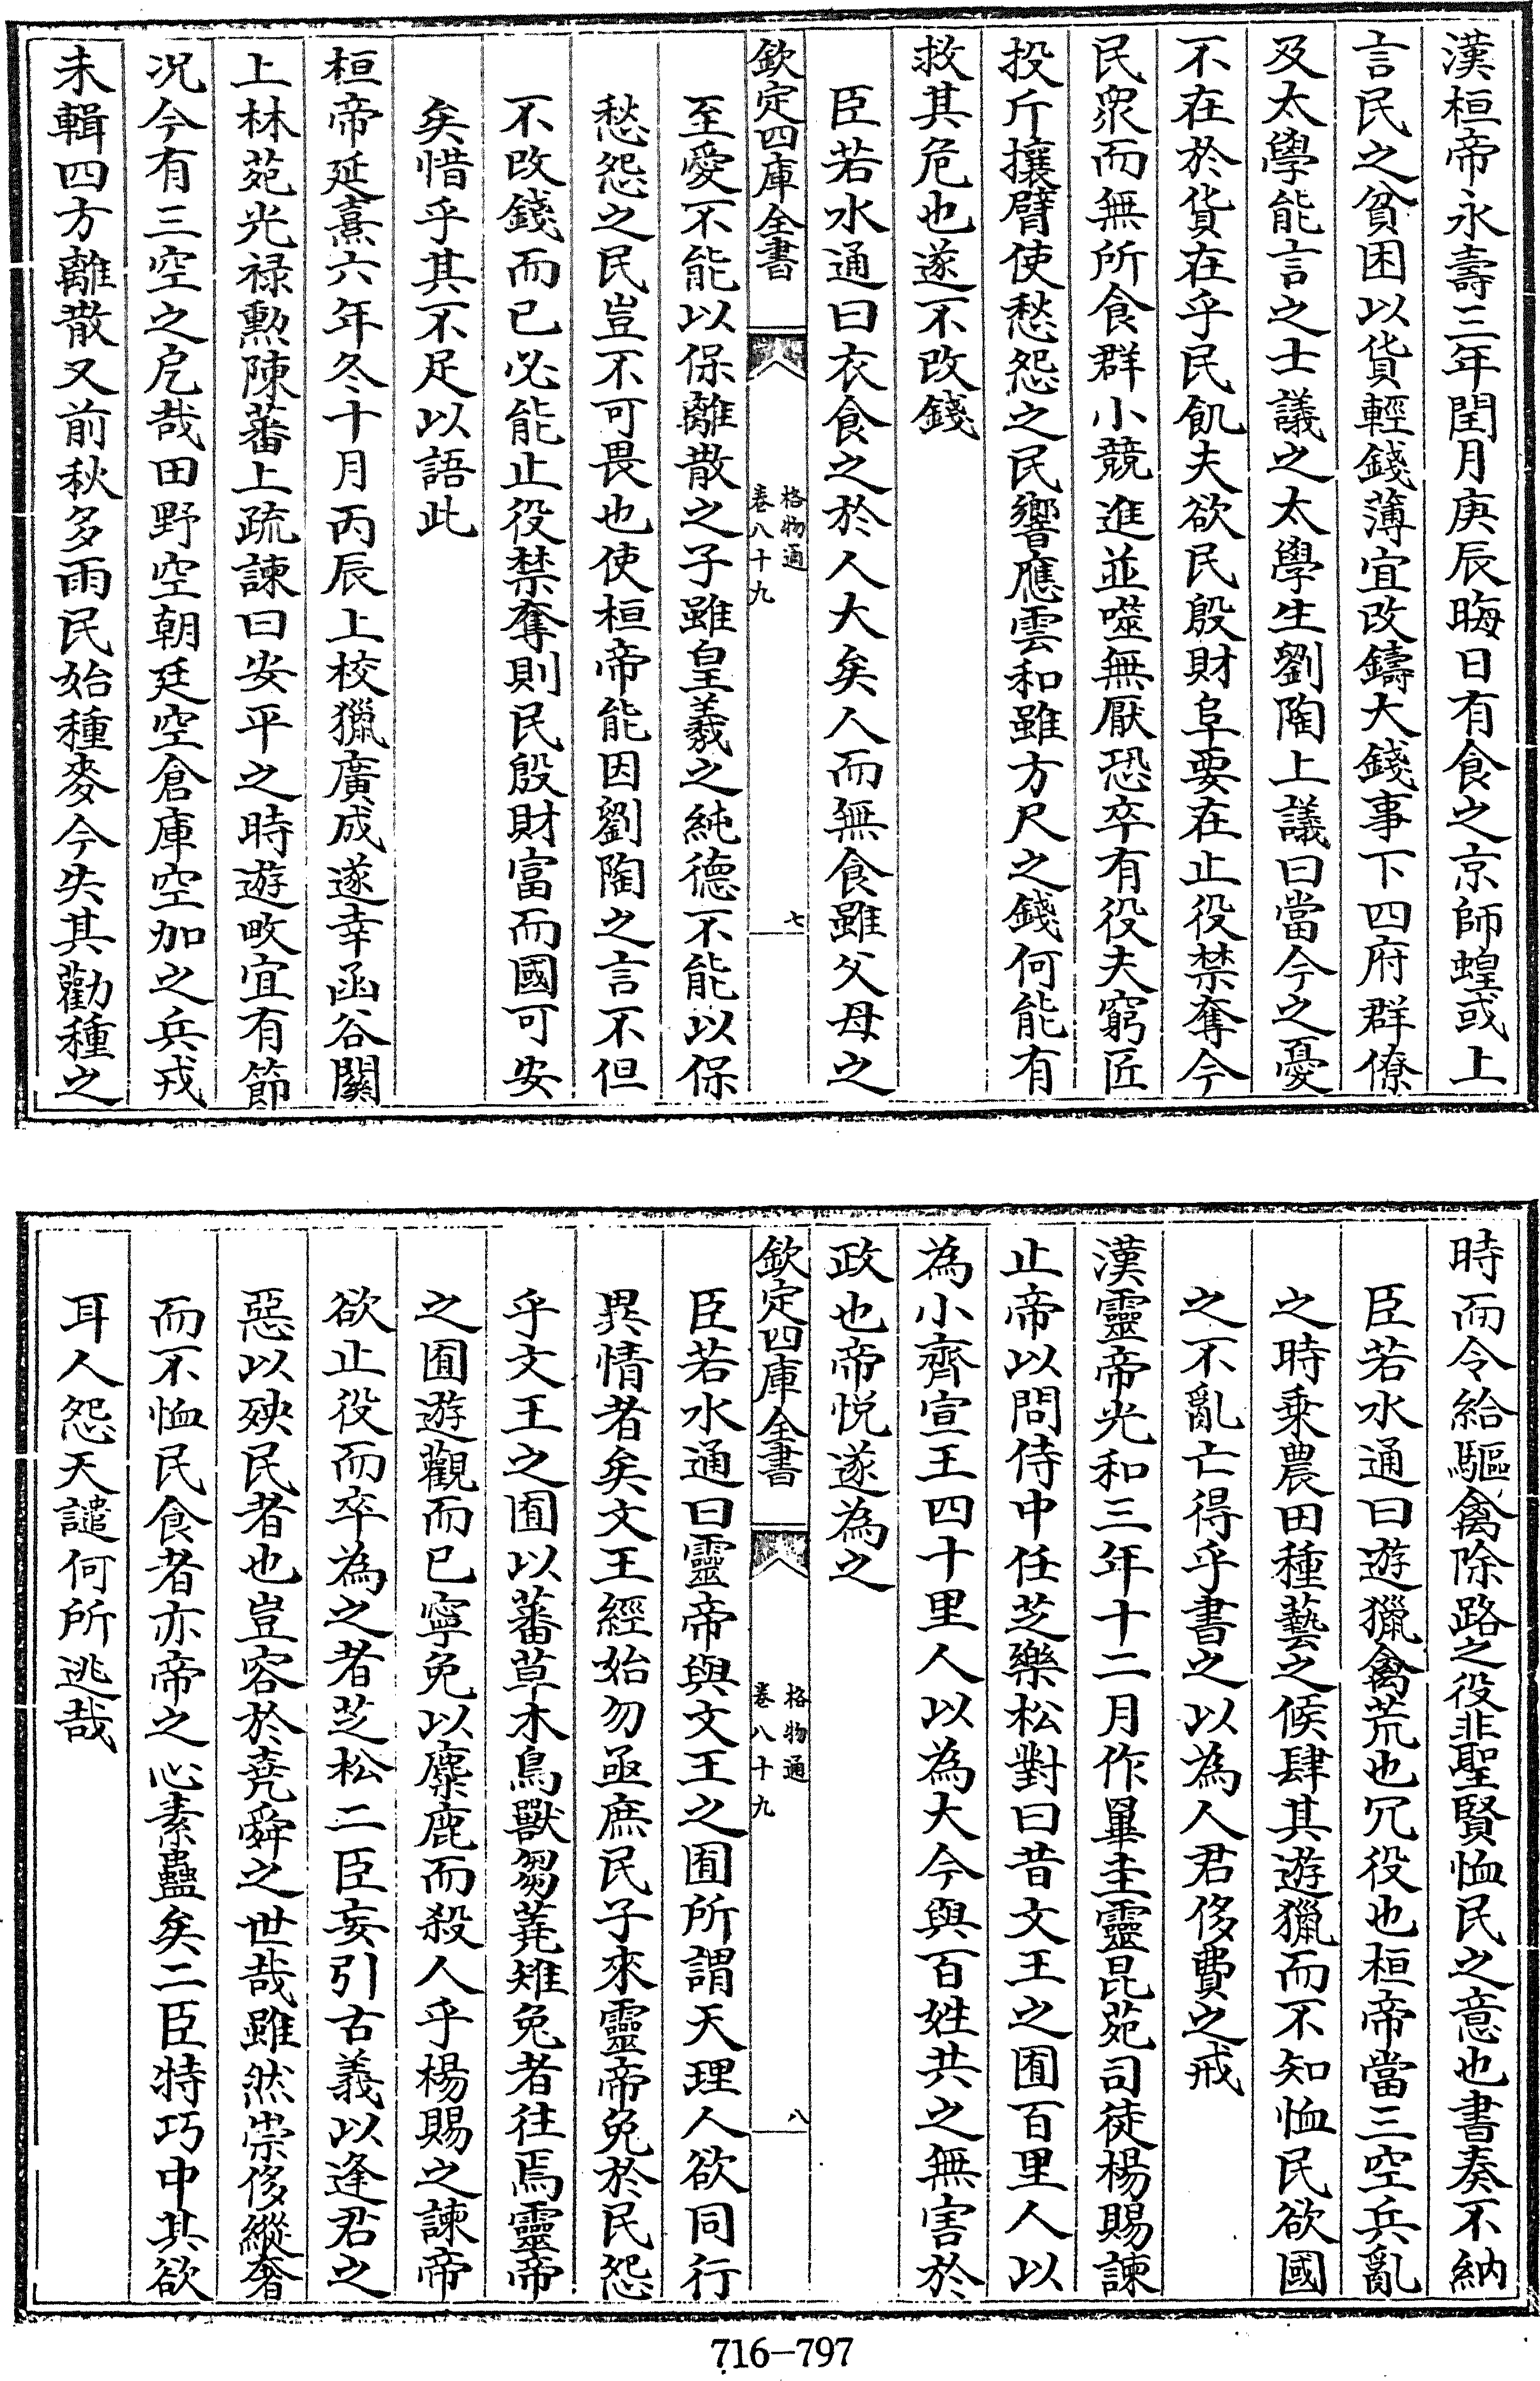 漢桓帝永壽三年閏月庚辰晦日有食之京師蝗或上
言民之貧困以貨輕錢薄宜改鑄大錢事下四府群僚
及太學能言之士議之太學生劉陶上議曰當今之憂
不在於貨在乎民飢夫欲民殷財阜要在止役禁奪今
民衆而無所食群小競進並噬無厭恐卒有役夫窮匠
投斤攘臂使愁怨之民響應雲和雖方尺之錢何能有
救其危也遂不改錢
臣若水通曰衣食之於人大矣人而無食雖父母之
欽定四庫全書
格物通
卷八十九
七
至愛不能以保離散之子雖皇羲之純德不能以保
愁怨之民豈不可畏也使桓帝能因劉陶之言不但
不改錢而已必能止役禁奪則民殷財富而國可安
矣惜乎其不足以語此
桓帝延熹六年冬十月丙辰上校獵廣成遂幸函谷關
上林苑光禄勲陳蕃上疏諫曰安平之時遊畋宜有節
况今有三空之戹哉田野空朝廷空倉庫空加之兵戎
未輯四方離散又前秋多雨民始種麥今失其勸種之
時而令給驅禽除路之役非聖賢恤民之意也書奏不納
臣若水通曰遊獵禽荒也冗役也桓帝當三空兵亂
之時乗農田種藝之候肆其遊獵而不知恤民欲國
之不亂亡得乎書之以為人君侈費之戒
漢靈帝光和三年十二月作罼圭靈昆苑司徒楊賜諫
止帝以問侍中任芝樂松對曰昔文王之囿百里人以
為小齊宣王四十里人以為大今與百姓共之無害於
政也帝悦遂為之
欽定四庫全書
格物通
卷八十九
八
臣若水通曰靈帝與文王之囿所謂天理人欲同行
異情者矣文王經始勿亟庶民子來靈帝免於民怨
乎文王之囿以蕃草木鳥獸芻蕘雉兔者往焉靈帝
之囿遊觀而已寧免以麋鹿而殺人乎楊賜之諫帝
欲止役而卒為之者芝松二臣妄引古義以逢君之
惡以殃民者也豈容於堯舜之世哉雖然崇侈縱奢
而不恤民食者亦帝之心素蠱矣二臣特巧中其欲
耳人怨天譴何所逃哉
716-797